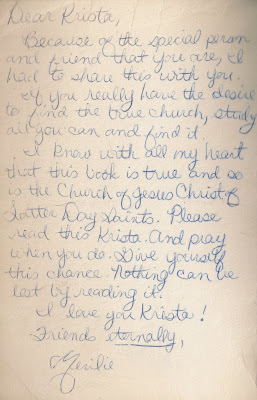 Dear Krista,
Because of the special person
and friend that you are, I
had to share this with you.
If you really have the desire
to find the true church, study
all you can and find it.
I know with all my heart
that this book is true and so
is the Church of Jesus Christ of
Latter Day Saints. Please
read this Krista. And pray
when you do. Give yourself
this chance. Nothing can be
lost by reading it.
I love you Krista!
Friends eternally,